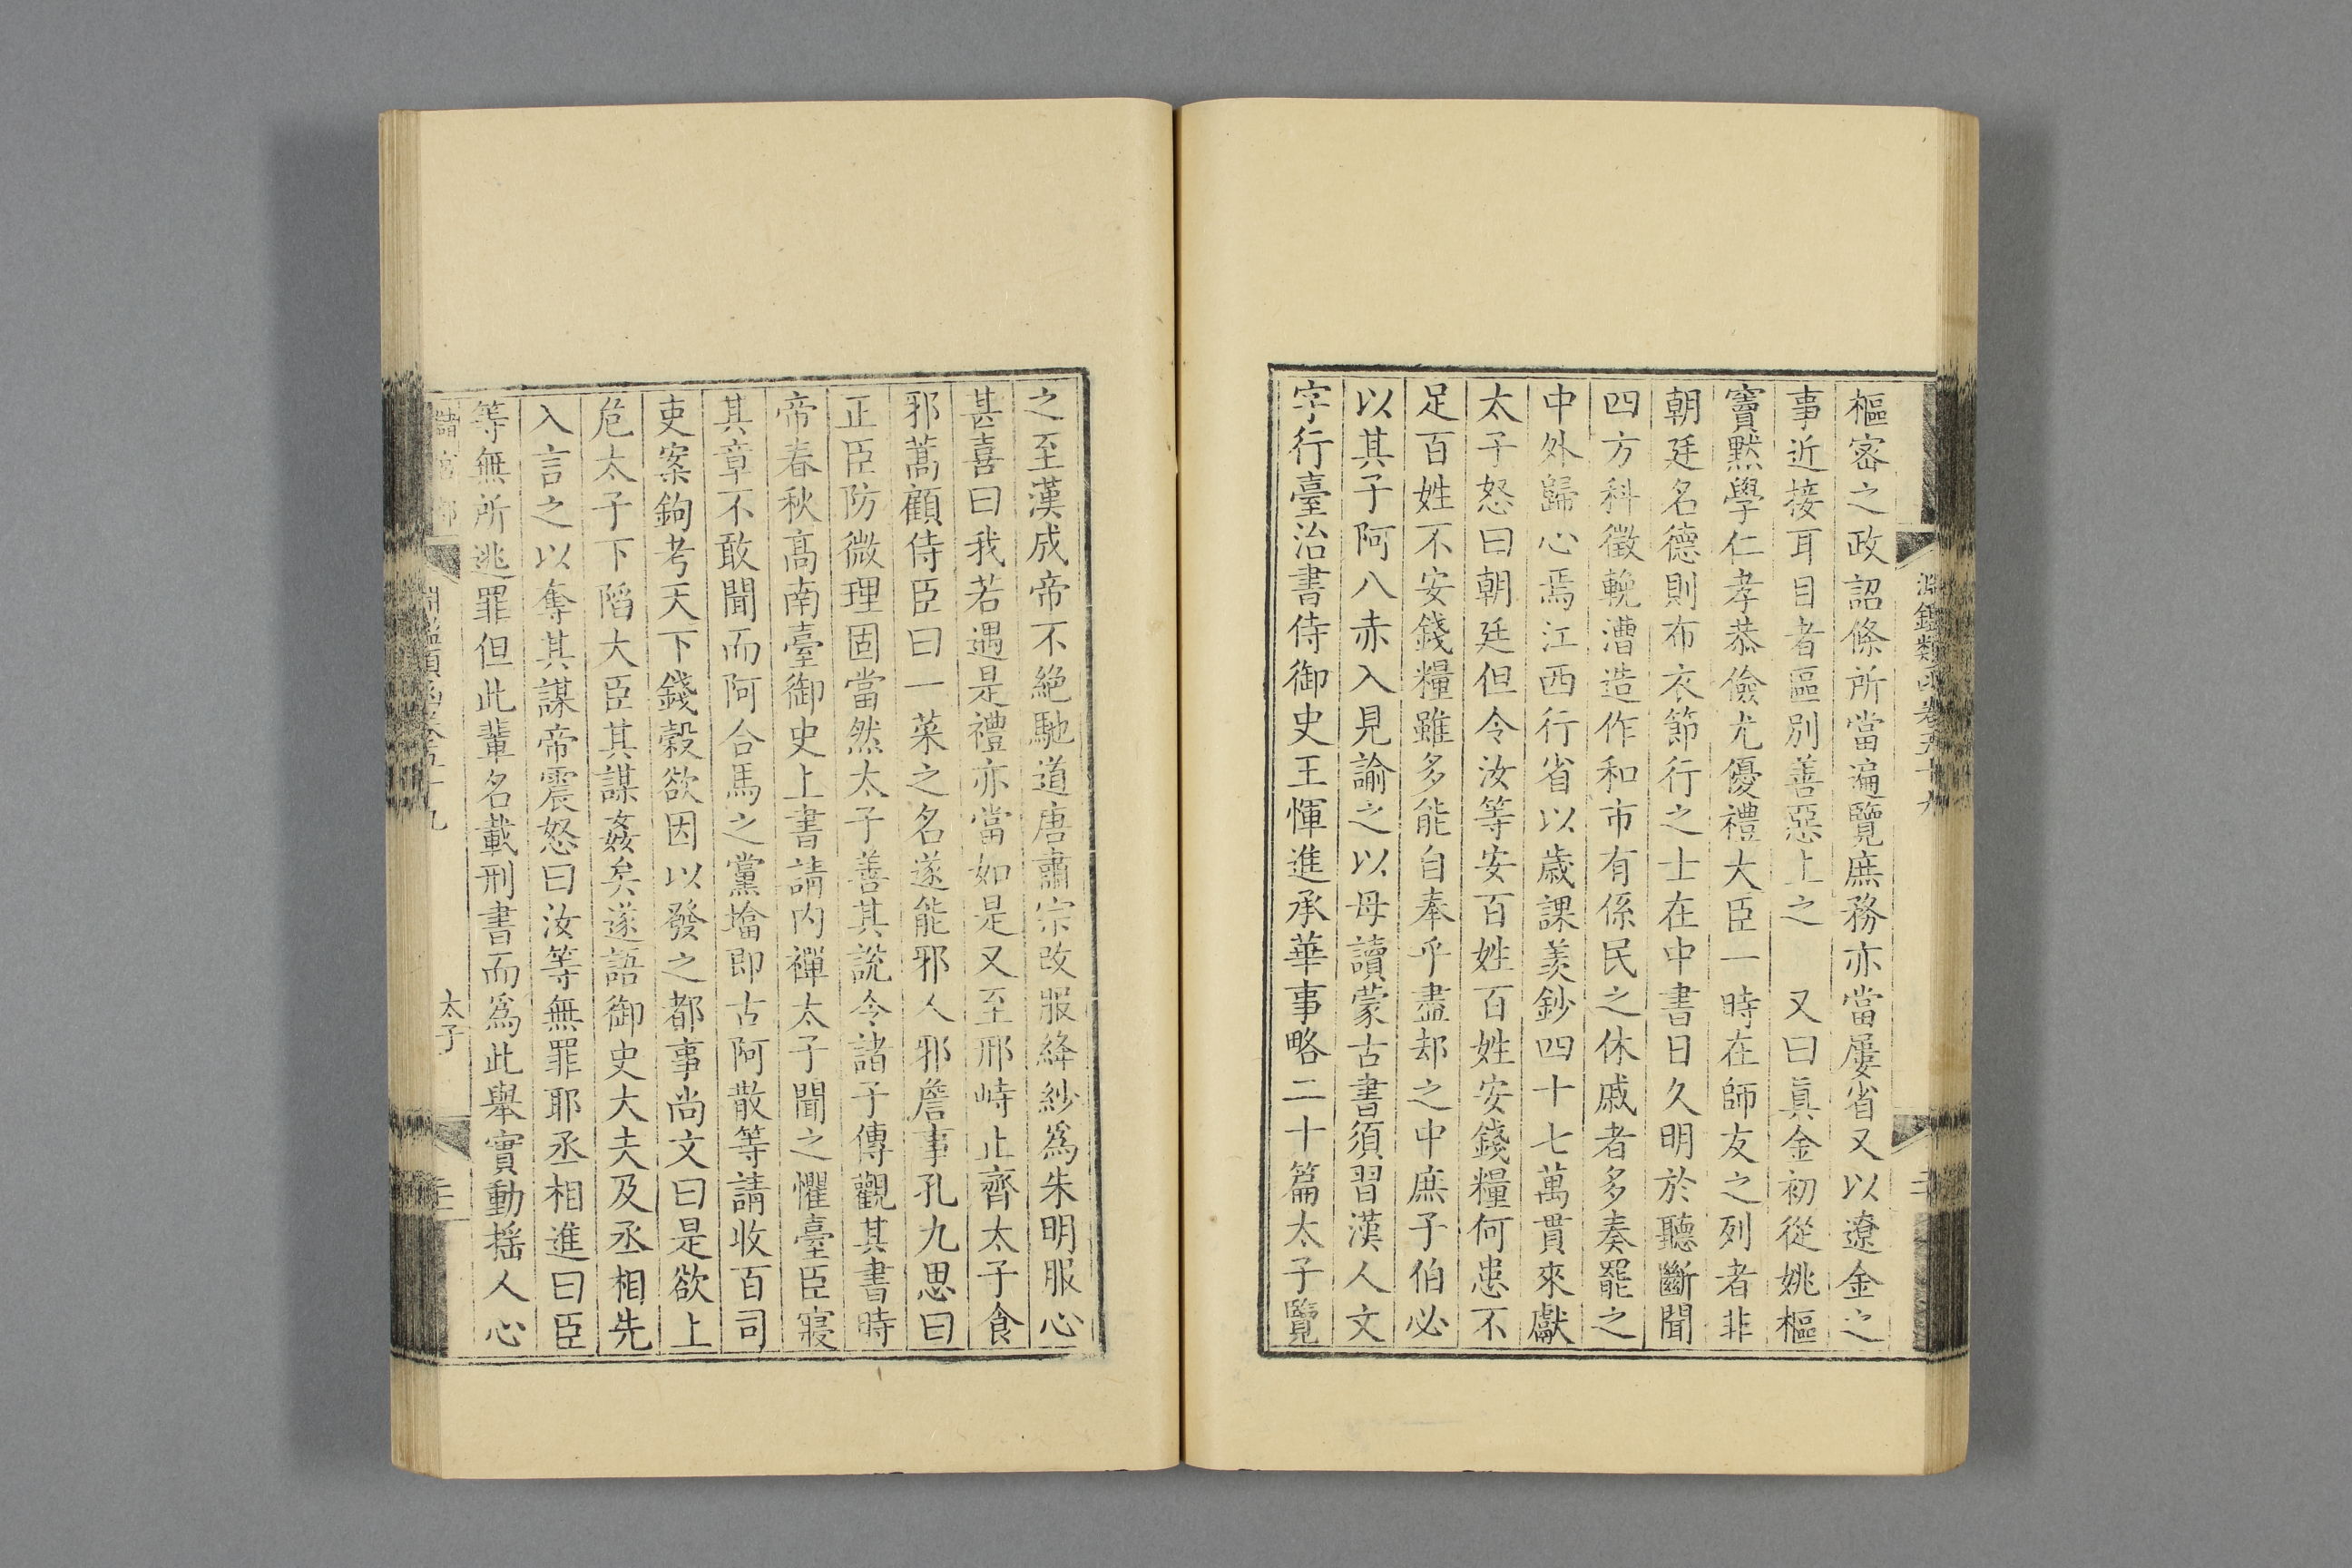 淵鑑類函卷五十九
樞宻之政詔條所當遍覽庶務亦當屢省又以遼金之
事近接耳目者區別善惡上之　又曰眞金初從姚樞
竇黙學仁孝恭儉尤優禮大臣一時在師友之列者非
朝廷名德則布衣節行之士在中書日久明於聽斷聞
四方科徵輓漕造作和市有係民之休戚者多奏罷之
中外歸心焉江西行省以歲課羡鈔四十七萬貫來獻
太子怒曰朝廷但令汝等安百姓百姓安錢糧何患不
足百姓不安錢糧雖多能自奉乎盡却之中庶子伯必
以其子阿八赤入見諭之以毋讀蒙古書須習漢人文
字行臺治書侍御史王惲進承華事略二十篇太子覽
之至漢成帝不絶馳道唐肅宗改服絳紗爲朱明服心
甚喜曰我若遇是禮亦當如是又至邢峙止齊太子食
邪蒿顧侍臣曰一菜之名遂能邪人邪詹事孔九思曰
正臣防微理固當然太子善其說令諸子傳觀其書時
帝春秋高南臺御史上書請内禪太子聞之懼臺臣寢
其章不敢聞而阿合馬之黨㙮即古阿散等請收百司
吏案鉤考天下錢穀欲因以發之都事尚文曰是欲上
危太子下陷大臣其謀姦矣遂語御史大夫及丞相先
入言之以奪其謀帝震怒曰汝等無罪耶丞相進曰臣
等無所逃罪但此輩名載刑書而爲此舉實動揺人心
儲宮部
淵鑑類函卷五十九
太子